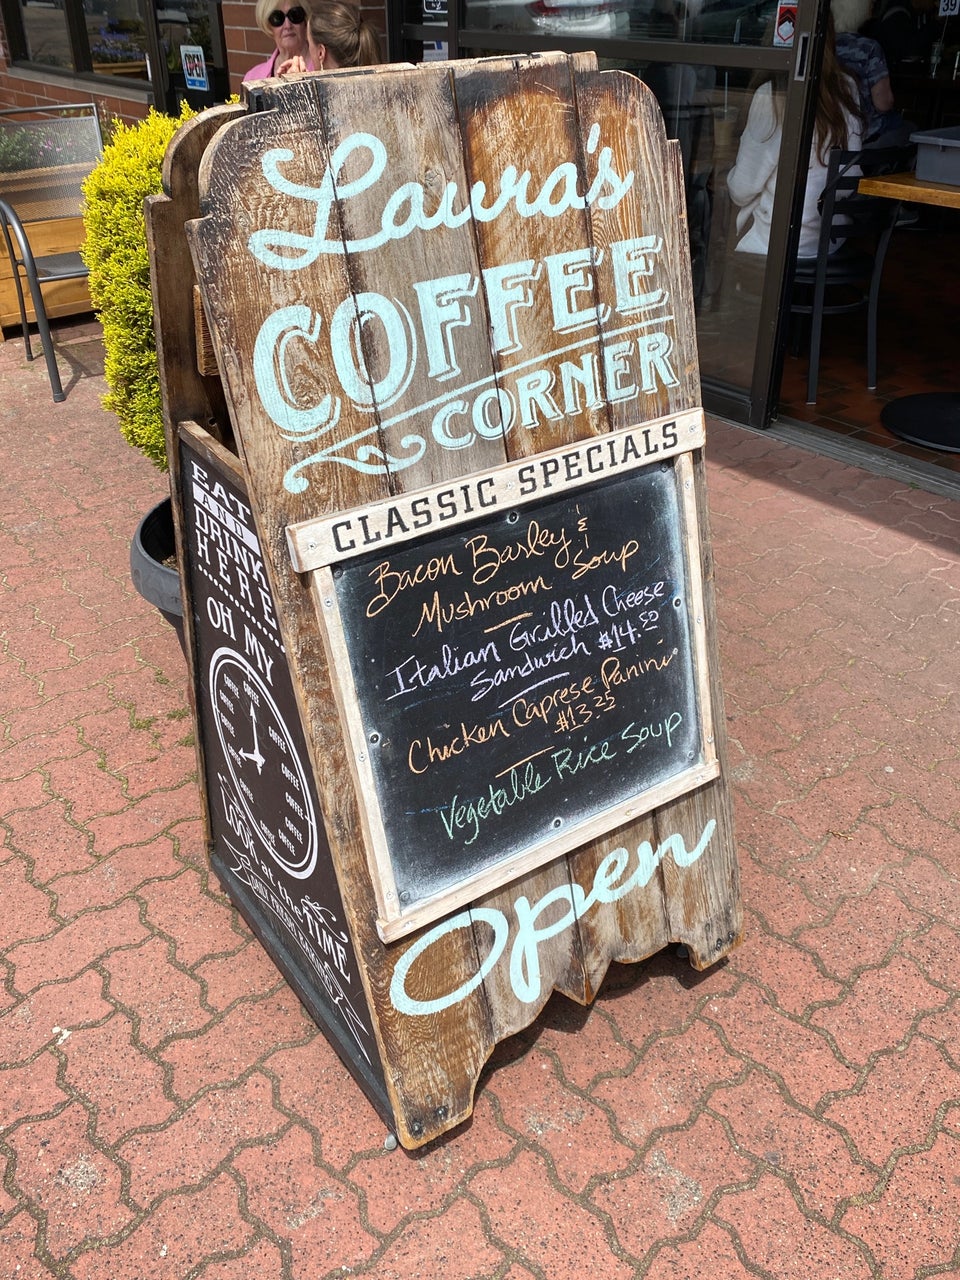 Laura's
COFFEE
CORNER
CLASSIC SPECIALS
Bacon Barley &
Mushroom Soup
Italian Grilled Cheese
Sandwich $14.50
Chicken Caprese Panini
$13.25
Vegetable Rice Soup
Open
EAT
AND
DRINK
HERE
OH MY
COFFEE
COFFEE
COFFEE
COFFEE
COFFEE
COFFEE
COFFEE
COFFEE
COFFEE
COFFEE
COFFEE
COFFEE
Look at the TIME
OPEN
39